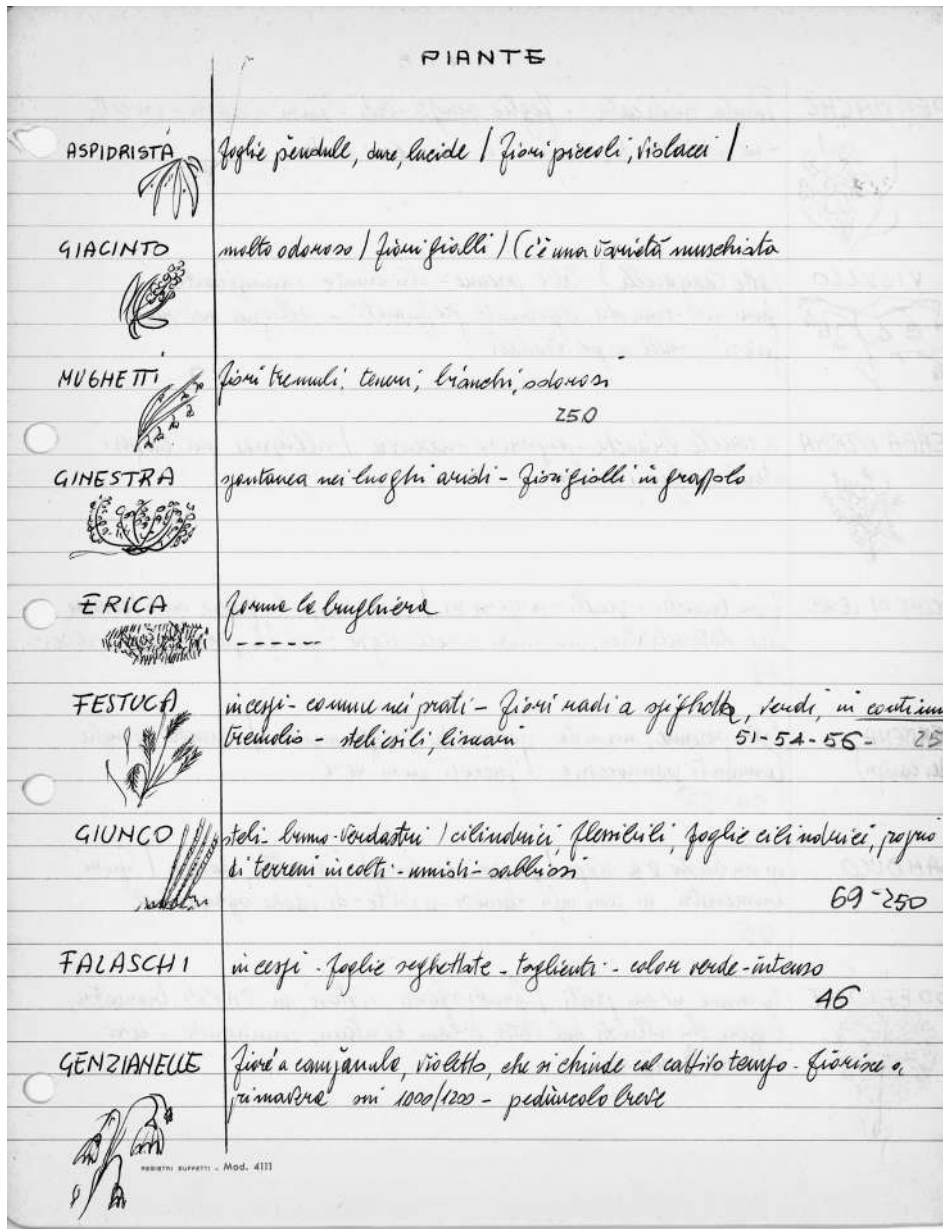 PIANTE
ASPIDRISTA foglie pendule, dure, lucide / fiori piccoli, violacei /
GIACINTO molto odoroso / fiori gialli / (c'è una varietà muschiata
MUGHETTI fiori tremuli, teneri, bianchi, odorosi
250
GINESTRA spontanea nei luoghi aridi - fiori gialli in grappolo
ERICA forma la brughiera
------
FESTUCA in cespi - comune nei prati - fiori radi a spighetta, verdi, in continuo
tremolio - steli esili, lineari 51-54-56- 25
GIUNCO steli bruno-verdastri / cilindrici, flessibili, foglie cilindriche, proprio
di terreni incolti - umidi - sabbiosi
69-250
FALASCHI in cespi - foglie seghettate - taglienti - color verde-intenso
46
GENZIANELLE fiore a campanula, violetto, che si chiude col cattivo tempo - fiorisce a
primavera sui 1000/1200 - peduncolo breve
REGISTRI BUFFETTI - Mod. 4111